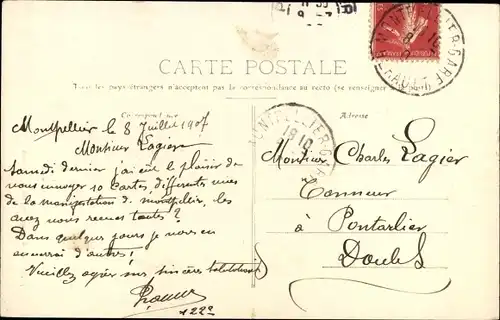 CARTE POSTALE
Tous les pays étrangers n'acceptent pas la correspondance au recto (se renseigner à la poste)
Correspondance
Adresse
Montpellier le 8 Juillet 1907
Monsieur Lagier
Samedi dernier j'ai eu le plaisir de
vous envoyer 10 Cartes, différentes vues
de la manifestation de Montpellier, les
avez vous reçues toutes?
Dans quelque jours je vous en
enverrai d'autres!
Veuillez agréer mes sincères salutations
1229
Monsieur Charles Lagier
à Pontarlier
Doubs
MONTPELLIER-GARE
HERAULT
MONTPELLIER-GARE